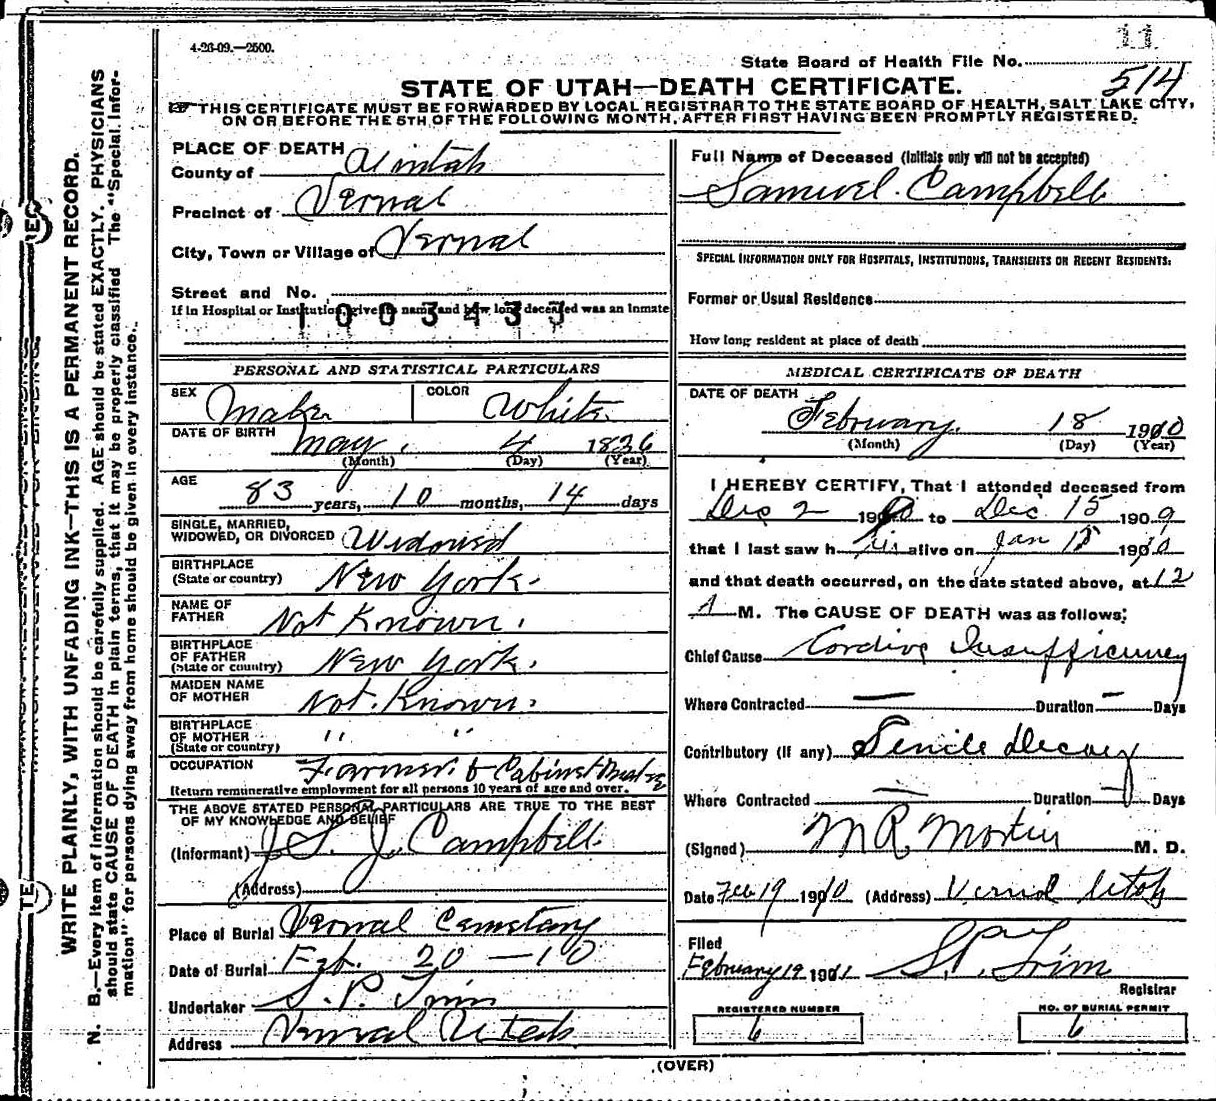 4-26-09.—2500.
11
State Board of Health File No.
514
STATE OF UTAH—DEATH CERTIFICATE.
THIS CERTIFICATE MUST BE FORWARDED BY LOCAL REGISTRAR TO THE STATE BOARD OF HEALTH, SALT LAKE CITY,
ON OR BEFORE THE 5TH OF THE FOLLOWING MONTH, AFTER FIRST HAVING BEEN PROMPTLY REGISTERED.
WRITE PLAINLY, WITH UNFADING INK—THIS IS A PERMANENT RECORD.
N. B.—Every item of information should be carefully supplied. AGE should be stated EXACTLY. PHYSICIANS
should state CAUSE OF DEATH in plain terms, that it may be properly classified. The "Special Infor-
mation" for persons dying away from home should be given in every instance.
PLACE OF DEATH
County of Uintah
Precinct of Vernal
City, Town or Village of Vernal
Street and No.
If in Hospital or Institution, give its name and how long deceased was an inmate
1003433
PERSONAL AND STATISTICAL PARTICULARS
SEX Male COLOR White
DATE OF BIRTH May 4 1826
(Month) (Day) (Year)
AGE 83 years, 10 months, 14 days
SINGLE, MARRIED,
WIDOWED, OR DIVORCED Widowed
BIRTHPLACE
(State or country) New York.
NAME OF
FATHER Not Known.
BIRTHPLACE
OF FATHER
(State or country) New York.
MAIDEN NAME
OF MOTHER Not Known.
BIRTHPLACE
OF MOTHER
(State or country) " "
OCCUPATION Farmer & Cabinet
Return remunerative employment for all persons 10 years of age and over.
THE ABOVE STATED PERSONAL PARTICULARS ARE TRUE TO THE BEST
OF MY KNOWLEDGE AND BELIEF
(Informant) J. S. J. Campbell
(Address)
Place of Burial Vernal Cemetary
Date of Burial Feb. 20 — 10
Undertaker S. P. Trim
Address Vernal Utah
Full Name of Deceased (Initials only will not be accepted)
Samuel Campbell
SPECIAL INFORMATION ONLY FOR HOSPITALS, INSTITUTIONS, TRANSIENTS OR RECENT RESIDENTS:
Former or Usual Residence
How long resident at place of death
MEDICAL CERTIFICATE OF DEATH
DATE OF DEATH
February. 18 1910
(Month) (Day) (Year)
I HEREBY CERTIFY, That I attended deceased from
Dec 2 190 to Dec 15 1909
that I last saw h im alive on Jan 15 1910
and that death occurred, on the date stated above, at 12
A M. The CAUSE OF DEATH was as follows:
Chief Cause Cordiac Insufficiency
Where Contracted — Duration — Days
Contributory (if any) Senile Decay
Where Contracted — Duration — Days
(Signed) M. D.
Date Feb 19 1910 (Address) Vernal Utah
Filed
February 19 191 S. P. Trim
Registrar
REGISTERED NUMBER
6
NO. OF BURIAL PERMIT
6
(OVER)